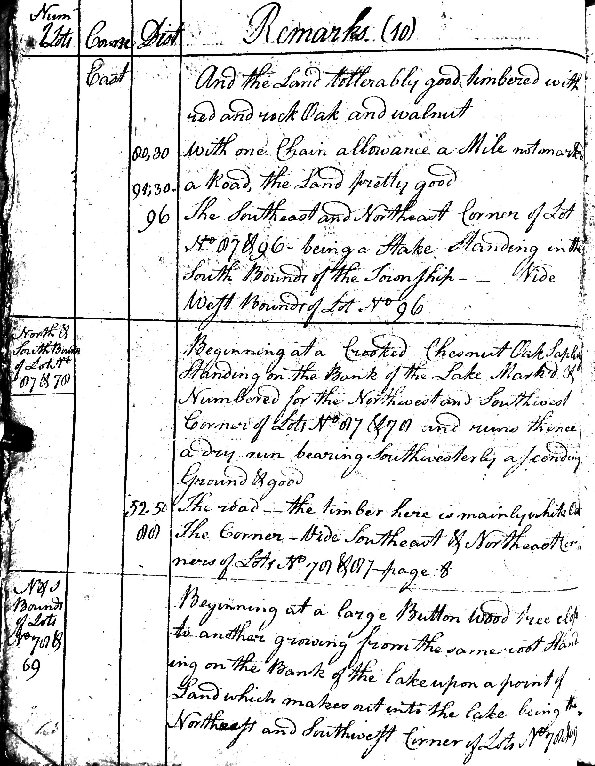 Num
Lots Course Dist Remarks. (10)
East And the Land tollerably good, timbered with
red and rock Oak and walnut
80,30 with one Chain allowance a Mile not mark
94,30 a Road, the Land pretty good
96 The Southeast and Northeast Corner of Lot
No 87 & 96 - being a Stake Standing in the
South Bounds of the Township - - Vide
West Bounds of Lot No 96
North &
South Bounds
of Lots No
87 & 78
Beginning at a Crooked Chesnut Oak Saplin
Standing on the Bank of the Lake Markd &
Numbered for the Northwest and Southwest
Corner of Lots No 87 & 78 and runs thence
a dry run bearing Southwesterly ascending
Ground & good
52.50 The road - the timber here is mainly white Oak
88 The Corner - Vide Southeast & Northeast Cor-
ners of Lots No 78 & 87 - page 8
N & S
Bounds
of Lots
No 78 &
69
Beginning at a large Button Wood tree close
to another growing from the same root Stand
ing on the Bank of the lake upon a point of
Land which makes out into the lake being the
Northwest and Southwest Corner of Lots No 78 & 69